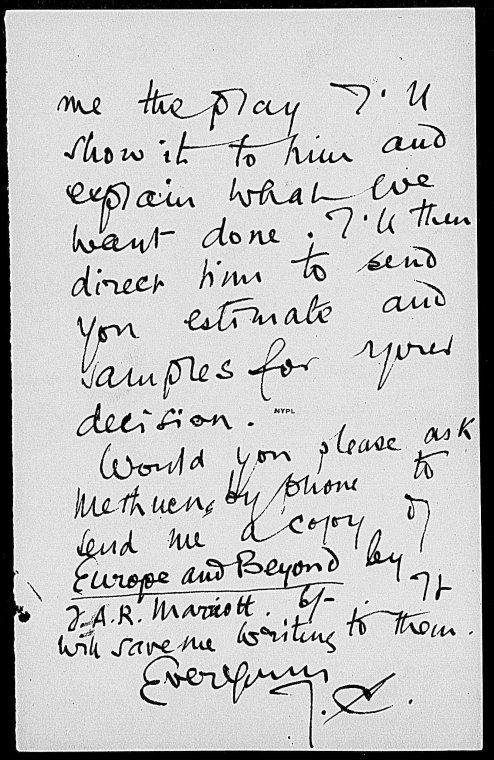 me the play I'll
show it to him and
explain what we
want done. I'll then
direct him to send
you estimate and
samples for your
decision.
NYPL
Would you please ask
Methuen, by phone to
send me a copy of
Europe and Beyond by
J.A.R. Marriott. 6/-. It
will save me writing to them.
Ever yours